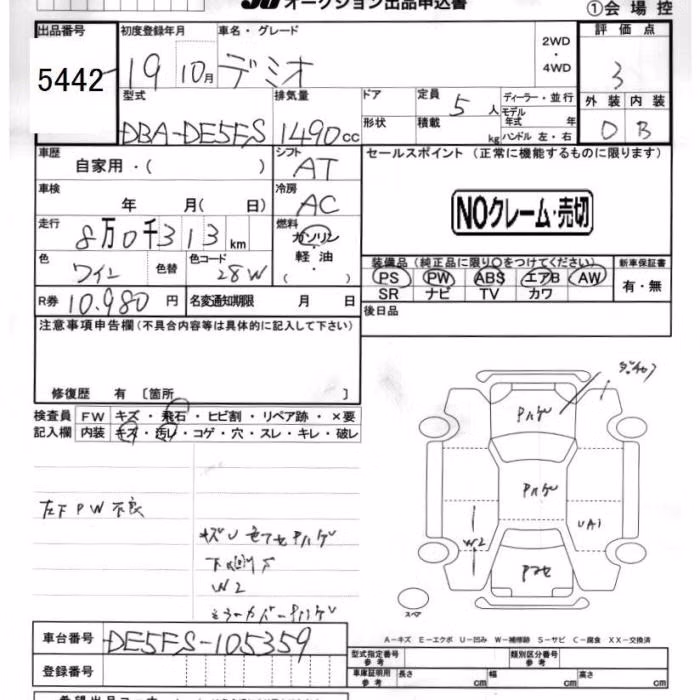 オークション出品申込書
①会場控
出品番号 初度登録年月 車名・グレード 評価点
5442 19 10月 デミオ 2WD・4WD 3
型式 排気量 ドア 定員 5人 ディーラー・並行 外装 内装
DBA-DE5FS 1490cc 形状 積載 kg モデル年式 年 ハンドル 左・右 D B
車歴 自家用・( ) シフト AT セールスポイント (正常に機能するものに限ります)
車検 年 月( 日) 冷房 AC
NOクレーム・売切
走行 8万0千313km 燃料 ガソリン 軽油 ( ・ )
色 ワイン 色替 色コード 28W
装備品 (純正品に限り○をつけてください) 新車保証書
PS PW ABS エアB AW 有・無
SR ナビ TV カワ
R券 10.980円 名変通知期限 月 日 後日品
注意事項申告欄 (不具合内容等は具体的に記入して下さい)
修復歴 有 〔箇所 〕
検査員 FW キズ・飛石・ヒビ割・リペア跡・×要
記入欄 内装 キズ・汚レ・コゲ・穴・スレ・キレ・破レ
左下PW不良
キズU 色アセ Pハゲ
W2
ミラーカバーPハゲ
Pハゲ
Pハゲ
UA1
W2
Pアセ
スペア
A-キズ E-エクボ U-凹み W-補修跡 S-サビ C-腐食 XX-交換済
車台番号 DE5FS-105359
型式指定番号 参考 類別区分番号 参考
登録番号 車庫証明用 参考 長さ cm 幅 cm 高さ cm
希望出品コーナー